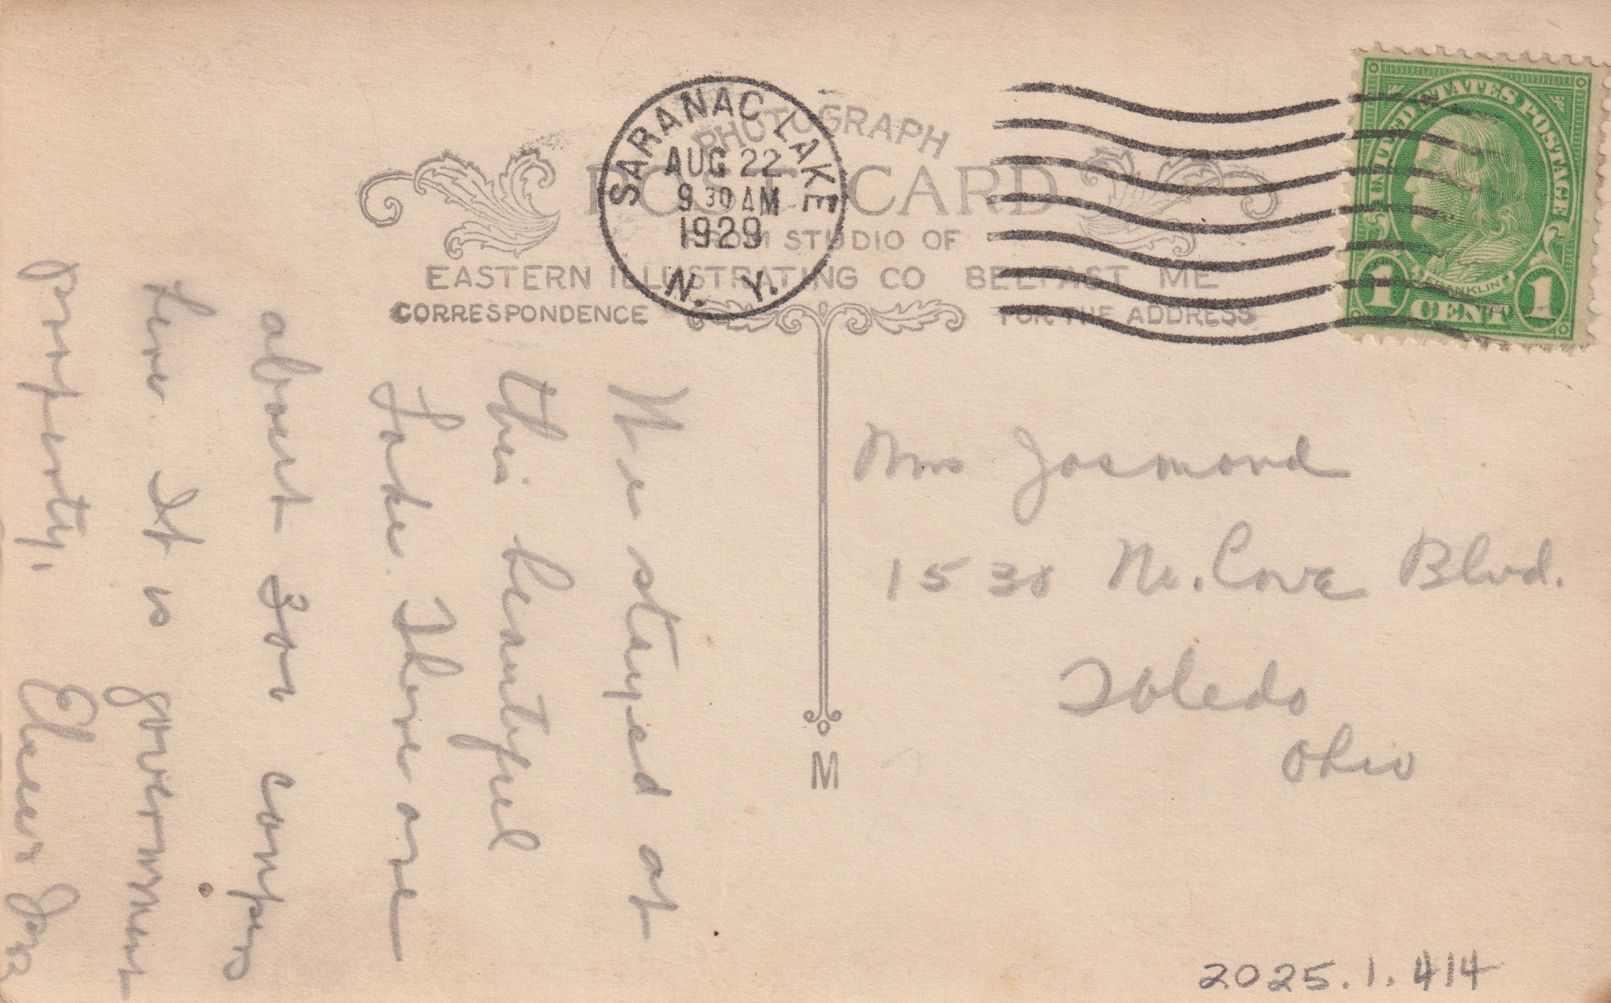 PHOTOGRAPH
POST CARD
FROM STUDIO OF
EASTERN ILLUSTRATING CO BELFAST ME
CORRESPONDENCE
FOR THE ADDRESS
SARANAC LAKE
AUG 22
9 30 AM
1929
N. Y.
UNITED STATES POSTAGE
FRANKLIN
1 CENT 1
We stayed at
this beautiful
Lake. There are
about 300 campers
here. It is government
property.
Mrs Josmond
1530 Ne. Cove Blvd.
Toledo
Ohio
M
2025.1.414